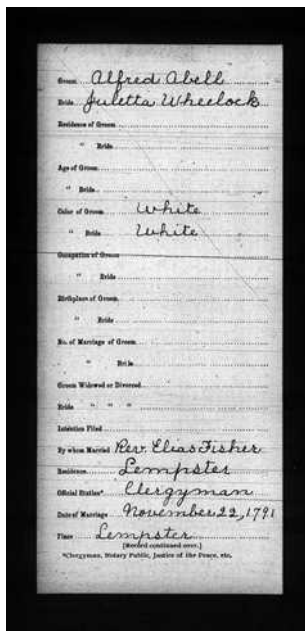 Groom Alfred Abell
Bride Juletta Wheelock
Residence of Groom
" Bride
Age of Groom
" Bride
Color of Groom White
" Bride White
Occupation of Groom
" Bride
Birthplace of Groom
" Bride
No. of Marriage of Groom
" Bride
Groom Widowed or Divorced
Bride " " "
Intention Filed
By whom Married Rev. Elias Fisher
Residence Lempster
Official Station* Clergyman
Date of Marriage November 22, 1791
Place Lempster
[Record continued over.]
*Clergyman, Notary Public, Justice of the Peace, etc.